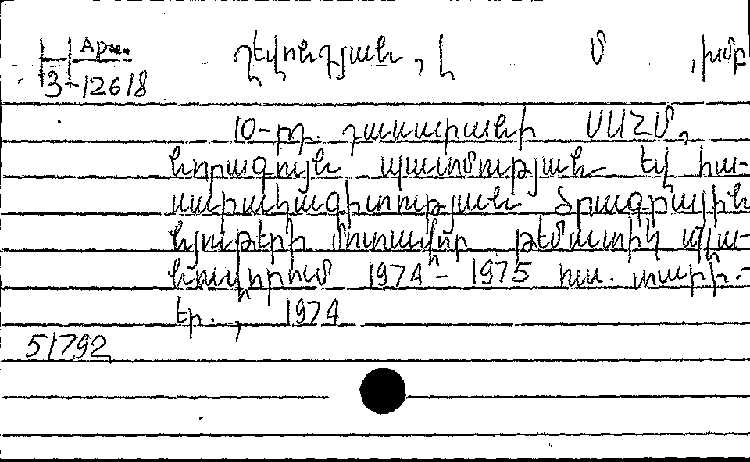 Арм.
3-12618
Ղևոնդյան, Լ Մ , խմբ
10-րդ. դասարանի ՍՍՀՄ,
նորագույն պատմության և հա-
սարակագիտության ծրագրային
նյութերի մոտավոր թեմատիկ պլա-
նավորում 1974-1975 ուս. տարի.-
Եր., 1974
51792